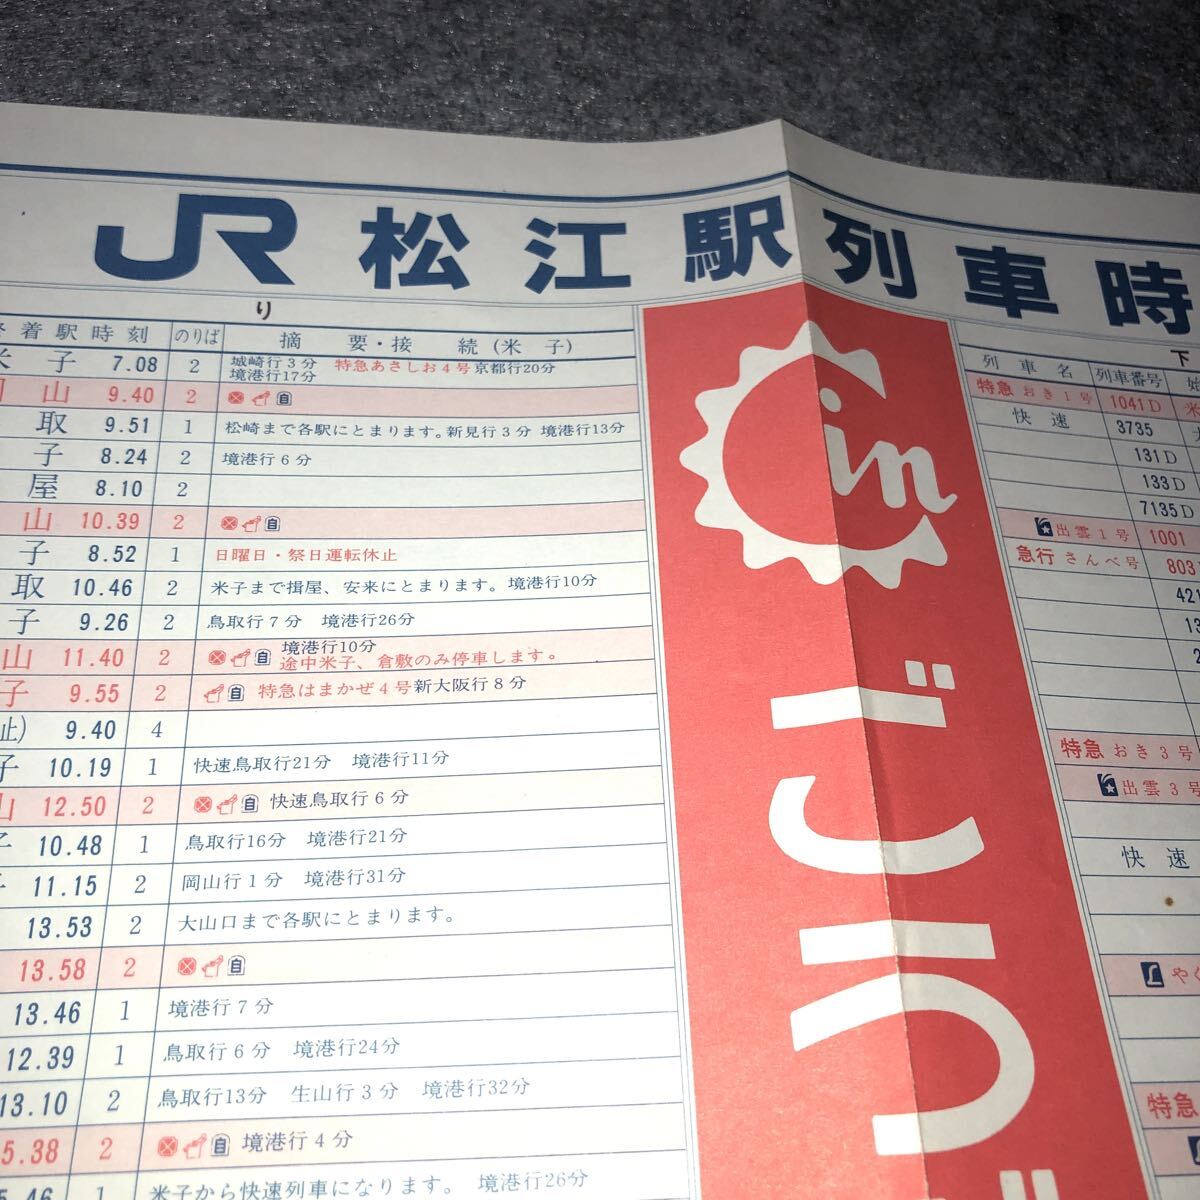 JR 松江駅列車時
り
着駅時刻 のりば 摘 要・接 続(米 子)
米 子 7.08 2 城崎行3分 特急あさしお4号京都行20分
境港行17分
山 9.40 2 自
取 9.51 1 松崎まで各駅にとまります。新見行3分 境港行13分
子 8.24 2 境港行6分
屋 8.10 2
山 10.39 2 自
子 8.52 1 日曜日・祭日運転休止
取 10.46 2 米子まで揖屋、安来にとまります。境港行10分
子 9.26 2 鳥取行7分 境港行26分
山 11.40 2 自 境港行10分
途中米子、倉敷のみ停車します。
子 9.55 2 自 特急はまかぜ4号新大阪行8分
止) 9.40 4
子 10.19 1 快速鳥取行21分 境港行11分
山 12.50 2 自 快速鳥取行6分
子 10.48 1 鳥取行16分 境港行21分
11.15 2 岡山行1分 境港行31分
13.53 2 大山口まで各駅にとまります。
13.58 2 自
13.46 1 境港行7分
12.39 1 鳥取行6分 境港行24分
13.10 2 鳥取行13分 生山行3分 境港行32分
5.38 2 自 境港行4分
5.46 1 米子から快速列車になります。 境港行26分
in
下
列車名 列車番号
特急 おき1号 1041D
快速 3735
131D
133D
7135D
出雲1号 1001
急行 さんべ号 803
421
13
2
特急 おき3号
出雲3号
快速
やく
特急